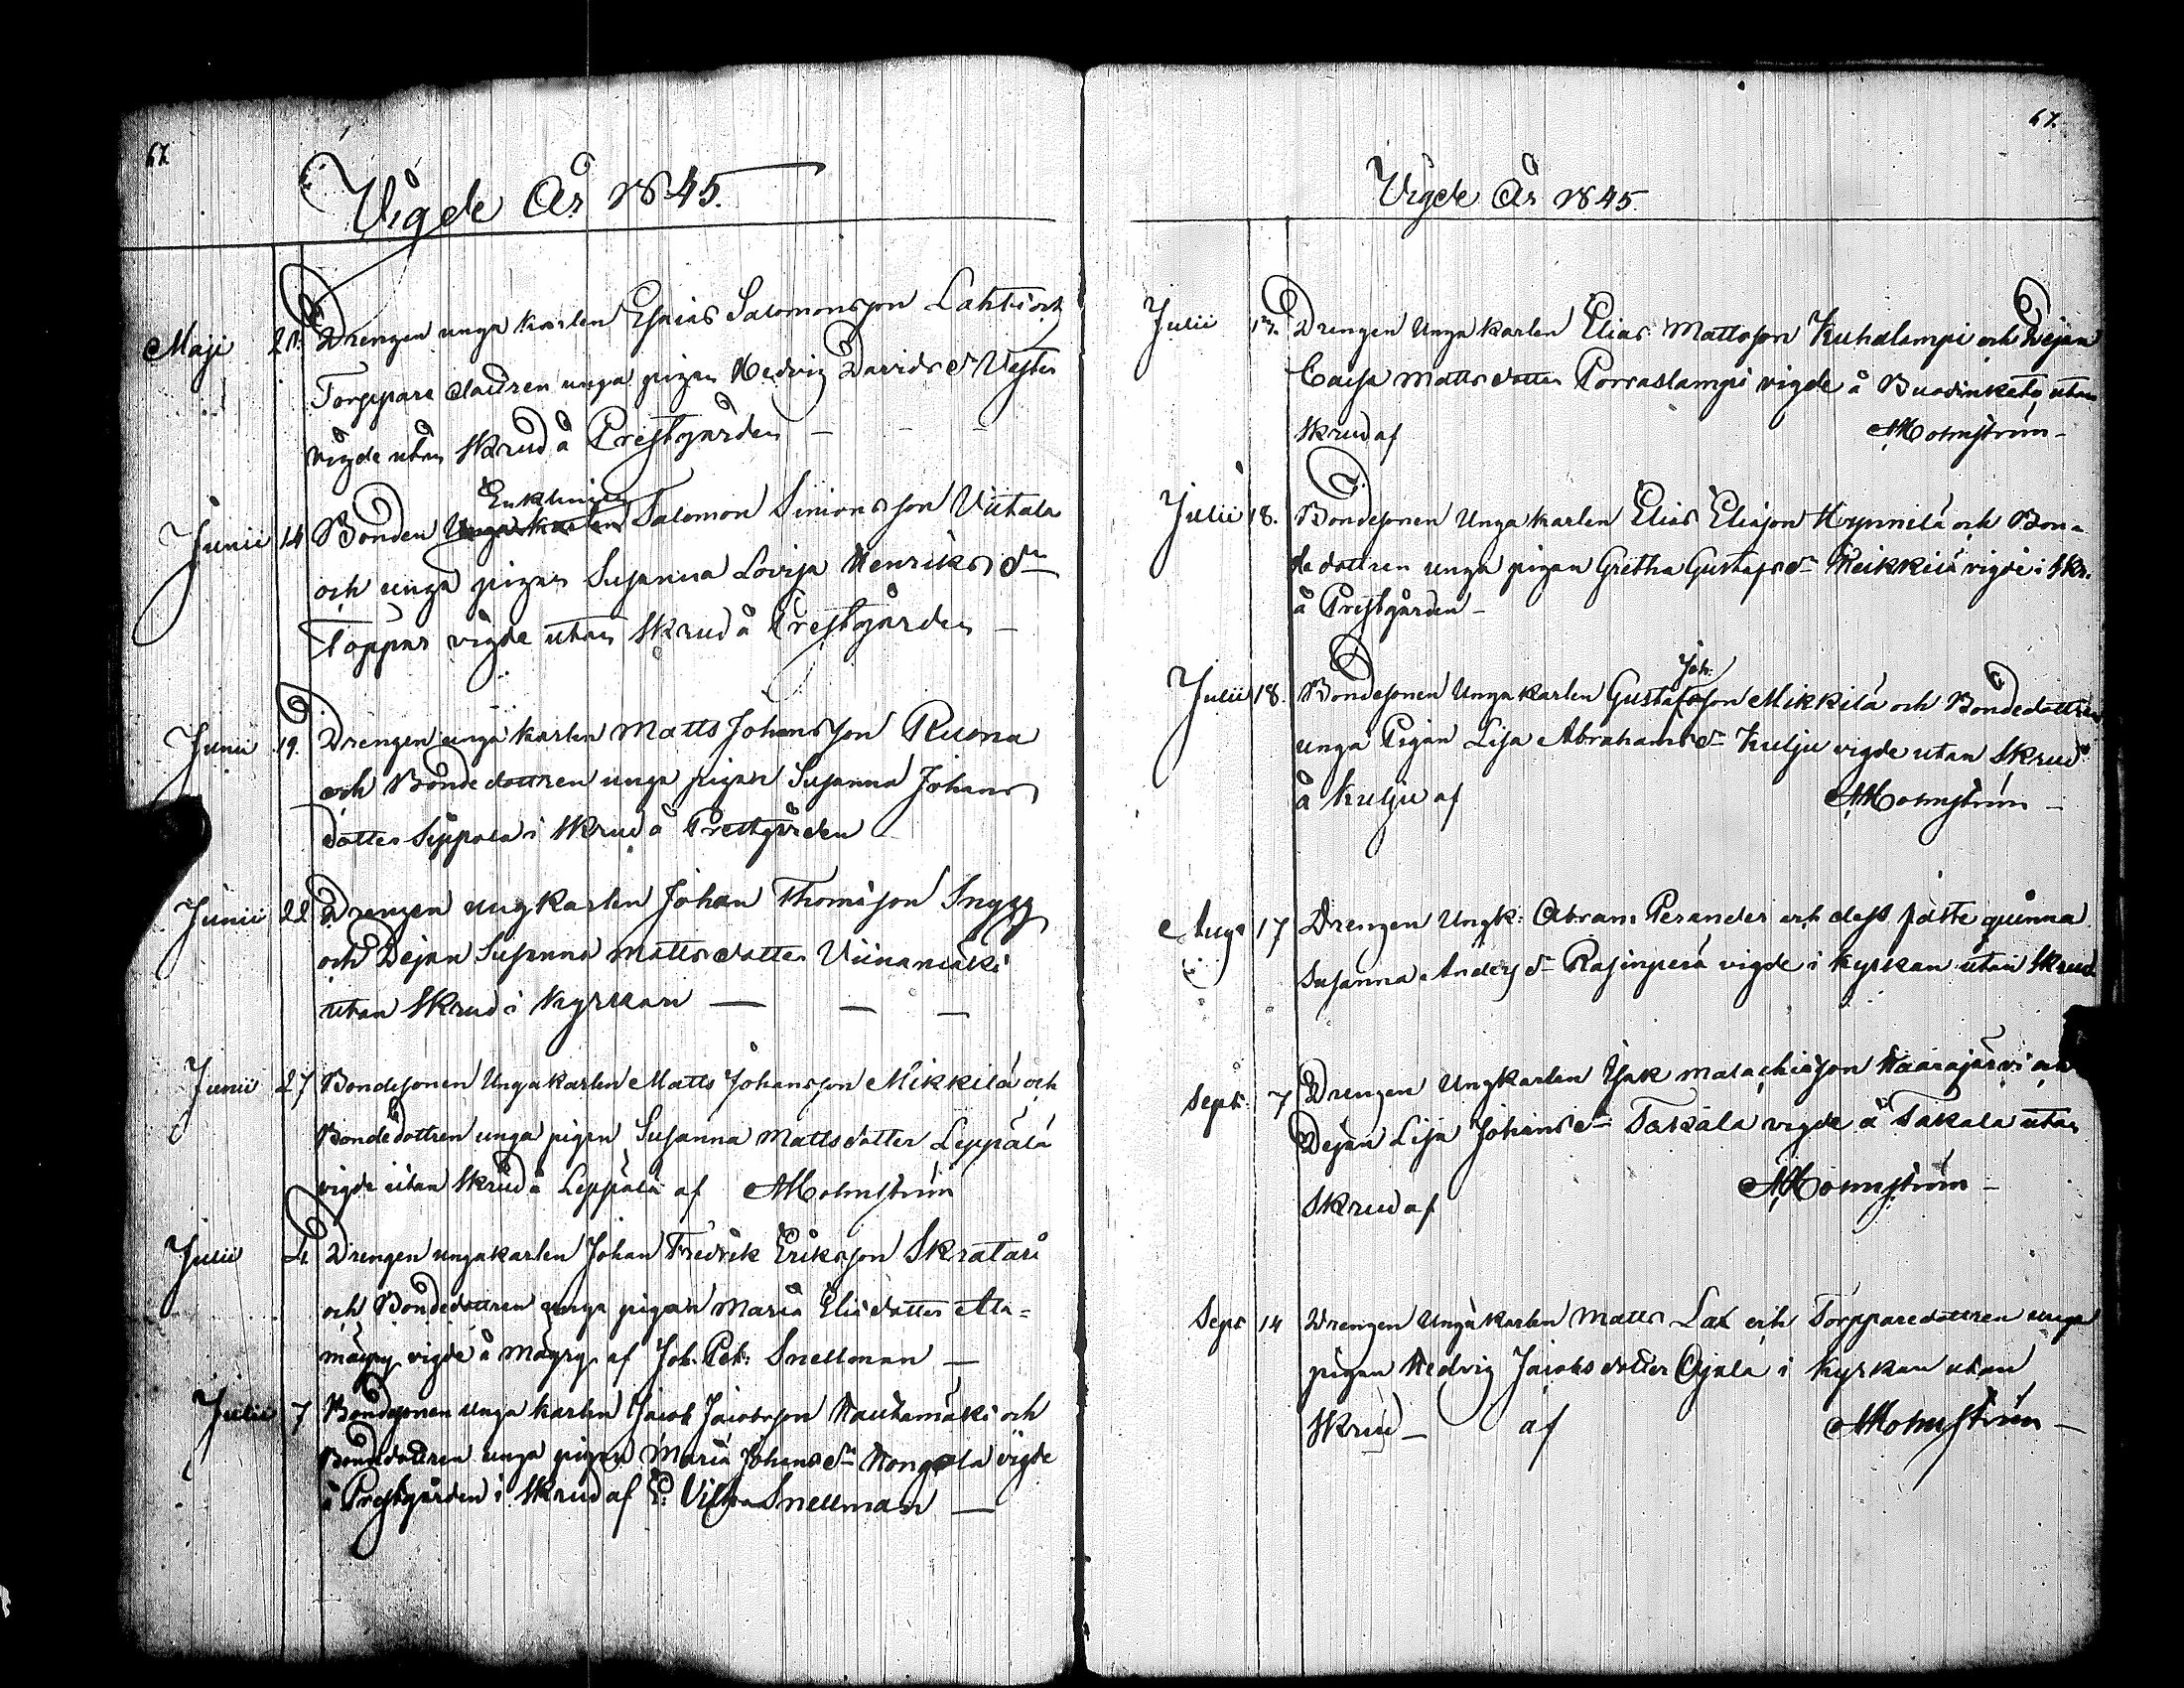 67.
Vigde År 1845.
Maji 21. Drengen unga karlen Esaias Salomonsson Lahti och
Torppare dottren unga pigan Hedvig Davids dr Vester
vigde utan Skrud å Prestgården —
Enklingen
Junii 14 Bonden Unga karlen Salomon Simonsson Viitala
och unga pigan Susanna Lovisa Henriks dr
Toppar vigde utan Skrud å Prestgården —
Junii 19. Drengen unga karlen Matts Johansson Ruona
och Bonde dottren unga pigan Susanna Johans
dotter Seppola i Skrud å Prestgården
Junii 22 Drengen ungkarlen Johan Thomsson Snygg
och Dejan Susanna Matts dotter Viinamäki
utan Skrud i Kyrkan — — —
Junii 27 Bondesonen Unga karlen Matts Johansson Mikkilä och
Bondedottren unga pigan Susanna Mattsdotter Leppälä
vigde utan Skrud å Leppälä af AHolmström
Julii 4. Drengen unga karlen Johan Fredrik Eriksson Skratari
och Bondedottren unga pigan Maria Elisdotter Ala=
mäyry vigde å Mäyry af Joh. Pet: Snellman —
Julii 7 Bondesonen unga karlen Jacob Jacobsson Hautamäki och
Bondedottren unga pigan Maria Johans dr Kongola vigde
å Prestgården i Skrud af Snellman —
67.
Vigde År 1845.
Julii 13. Drengen Unga karlen Elias Mattsson Kuhalampi och Dejan
Caisa Matts dotter Porraslampi vigde å utan
Skrud af AHolmström —
Julii 18. Bondesonen Unga karlen Elias Eliasson Hynnilä och Bon=
de dottren unga pigan Gretha Gustafs dr Heikkilä vigde i Skr.
å Prestgården —
Joh.
Julii 18. Bondesonen Unga karlen Gustaf son Mikkilä och Bondedottren
unga Pigan Lisa Abrahams dr Kulju vigde utan Skrud
å Kulju af AHolmström —
Aug. 17 Drengen Ungk: Abram Perander och dess fäste quinna
Susanna Anders dr Rasinperä vigde i kyrkan utan Skrud
Sept. 7 Drengen Ungkarlen Isak Malachisson Haarajärvi och
Dejan Lisa Johans dr Takala vigde å Takala utan
Skrud af AHolmström —
Sept 14 Drengen Unga karlen Matts Lax och Torpparedottren unga
pigan Hedvig Jacobs dotter Ojala i Kyrkan utan
Skrud — af AHolmström —